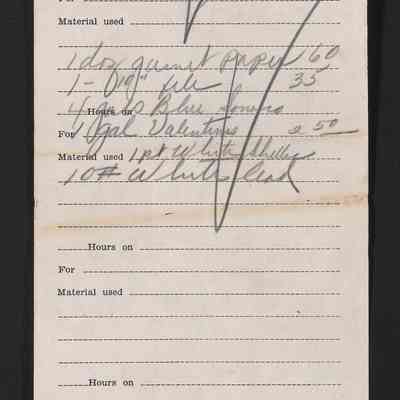 For
Material used
1 doz garnet paper 60
1 - 10" file 35
4 Blue
Hours on
For
1 gal Valentine 5 50
Material used 1 pt White Shellac
10# White Lead
Hours on
For
Material used
Hours on